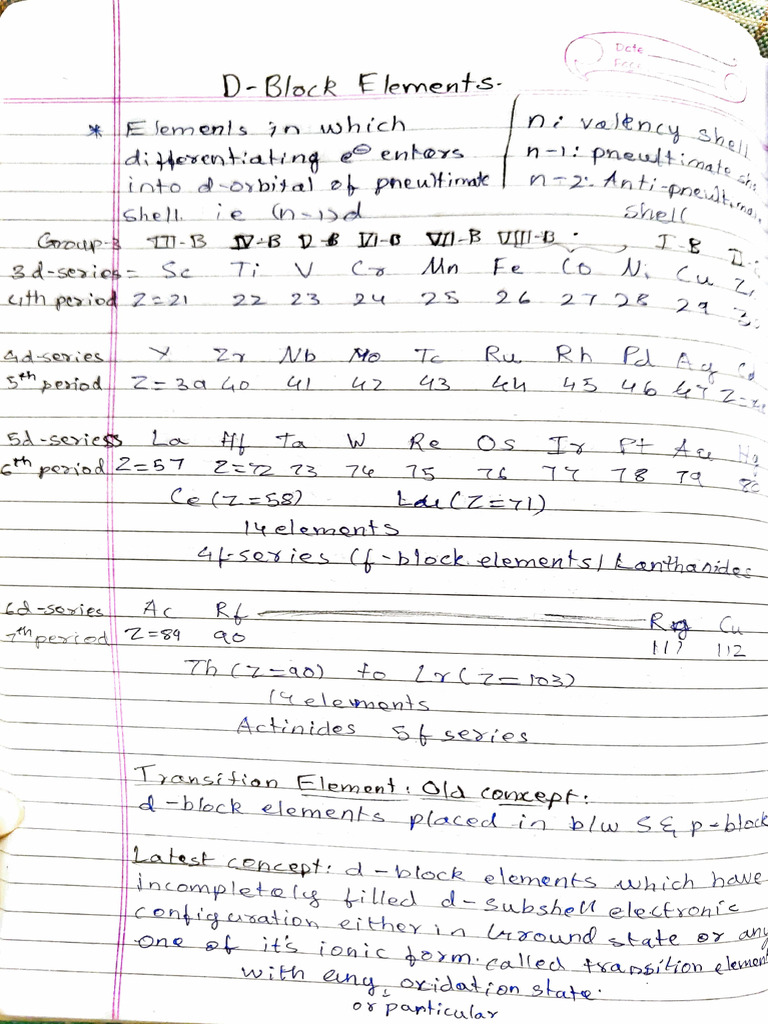 Date
Page
D-Block Elements.
* Elements in which
differentiating e⊖ enters
into d-orbital of pneultimate
shell ie (n-1)d
n: valency shell
n-1: pneultimate she
n-2: Anti-pneultima
shell
Group- III-B IV-B V-B VI-B VII-B VIII-B I-B II-
3d-series= Sc Ti V Cr Mn Fe Co Ni Cu
4th period Z=21 22 23 24 25 26 27 28 29 3
4d-series Y Zr Nb Mo Tc Ru Rh Pd Ag Cd
5th period Z=39 40 41 42 43 44 45 46 47 Z=
5d-seriess La Hf Ta W Re Os Ir Pt Au Hg
6th period Z=57 Z=72 73 74 75 76 77 78 79 80
Ce (Z=58) Lu (Z=71)
14 elements
4f-series (f-block elements/Lanthanides
6d-series Ac Rf Rg Cu
7th period Z=89 90 111 112
Th (Z=90) to Lr (Z=103)
14 elements
Actinides 5f series
Transition Element: Old concept:
d-block elements placed in b/w S & p-block
Latest concept: d-block elements which have
incompletely filled d-subshell electronic
configuration either in Ground state or any
one of it's ionic form. called transition element
with any, oxidation state.
or particular